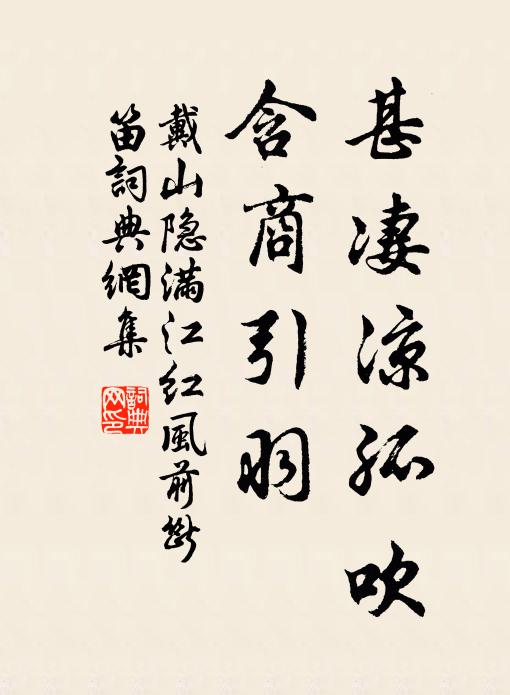 甚凄涼孤吹
含商引羽
戴山隐满江红風前斷
笛詞典網集
詞典网印